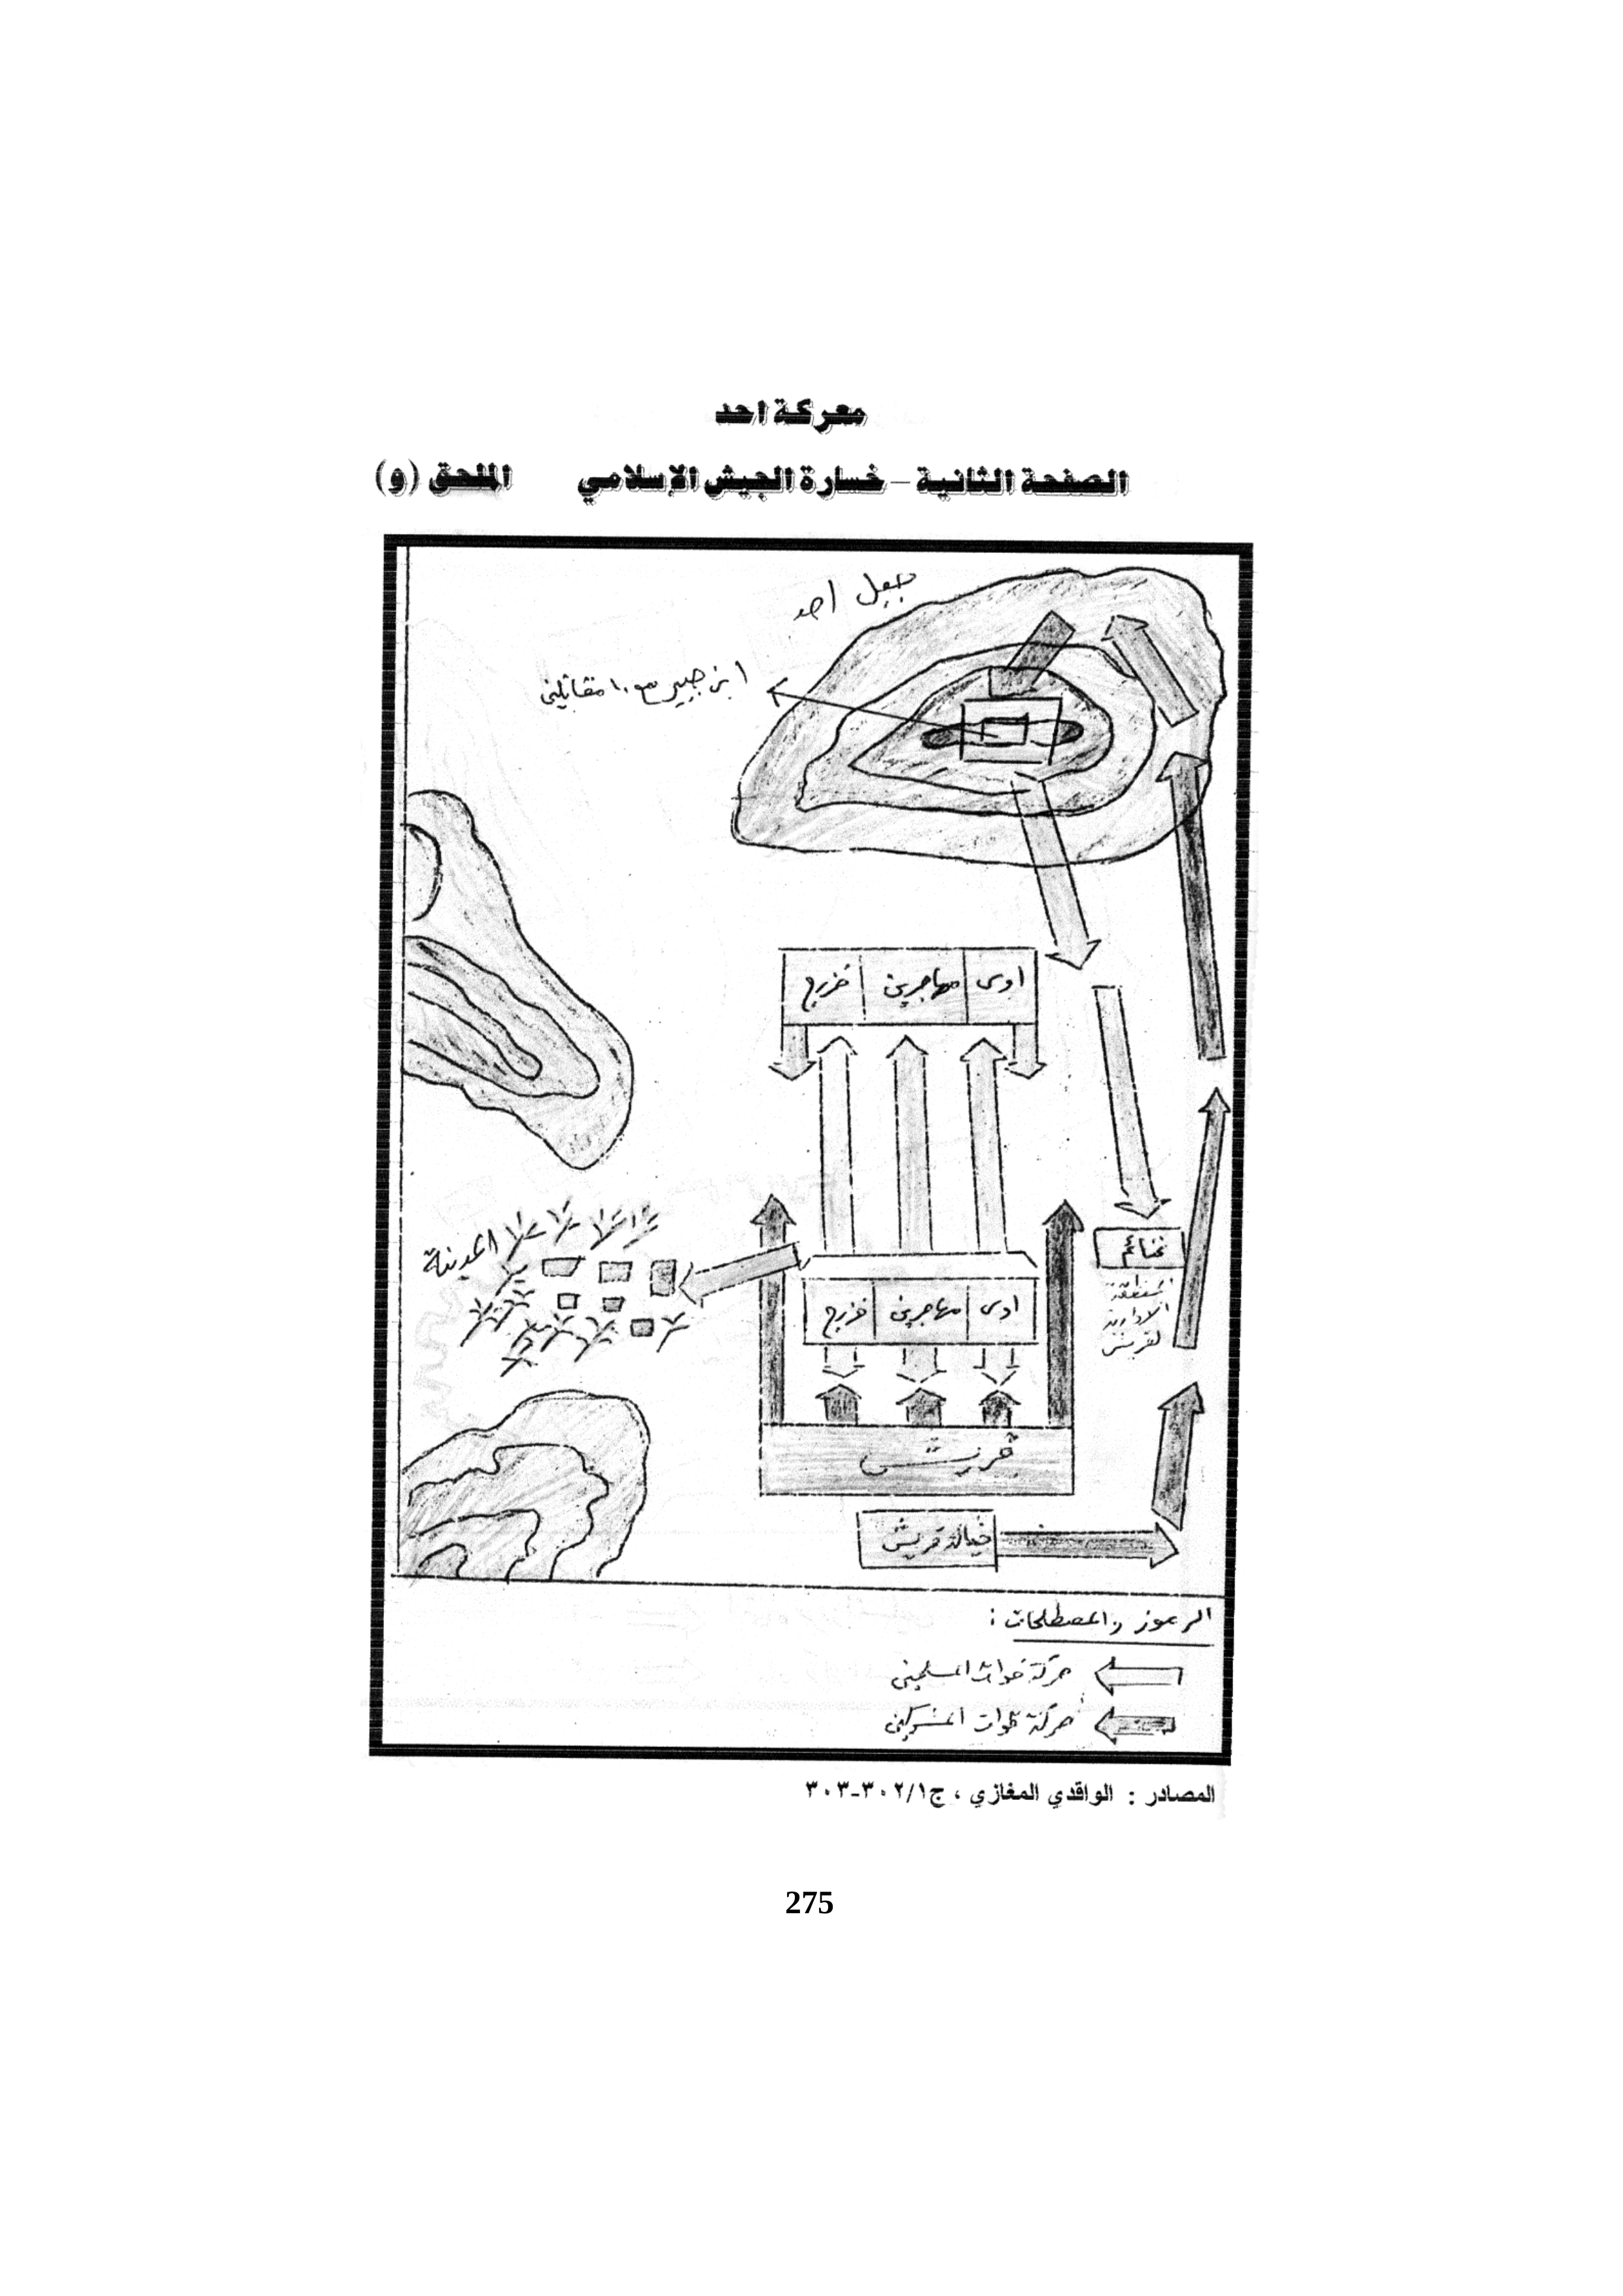 معركة احد
الصفحة الثانية – خسارة الجيش الإسلامي الملحق (و)
جبل احد
ابن جبير مع ١٠ مقاتلين
اوس مهاجرين خزرج
المدينة
غنائم
المنطقة
الادارية
لقريش
اوس مهاجرين خزرج
قريش
خيالة قريش
الرموز والمصطلحات :
حركة قوات المسلمين
حركة قوات المشركين
المصادر : الواقدي المغازي ، ج٣٠٢/١-٣٠٣
275